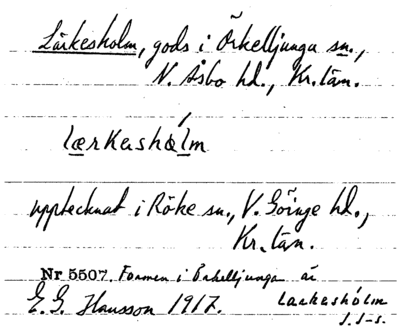 Lärkesholm, gods i Örkelljunga sn.,
N. Åsbo hd., Kr. län.
lærkashólm
upptecknat i Röke sn., V. Göinge hd.,
Kr. län.
Nr 5507. Formen i Örkelljunga är
E. G. Hansson 1917. larkeshólm
J. J-s.